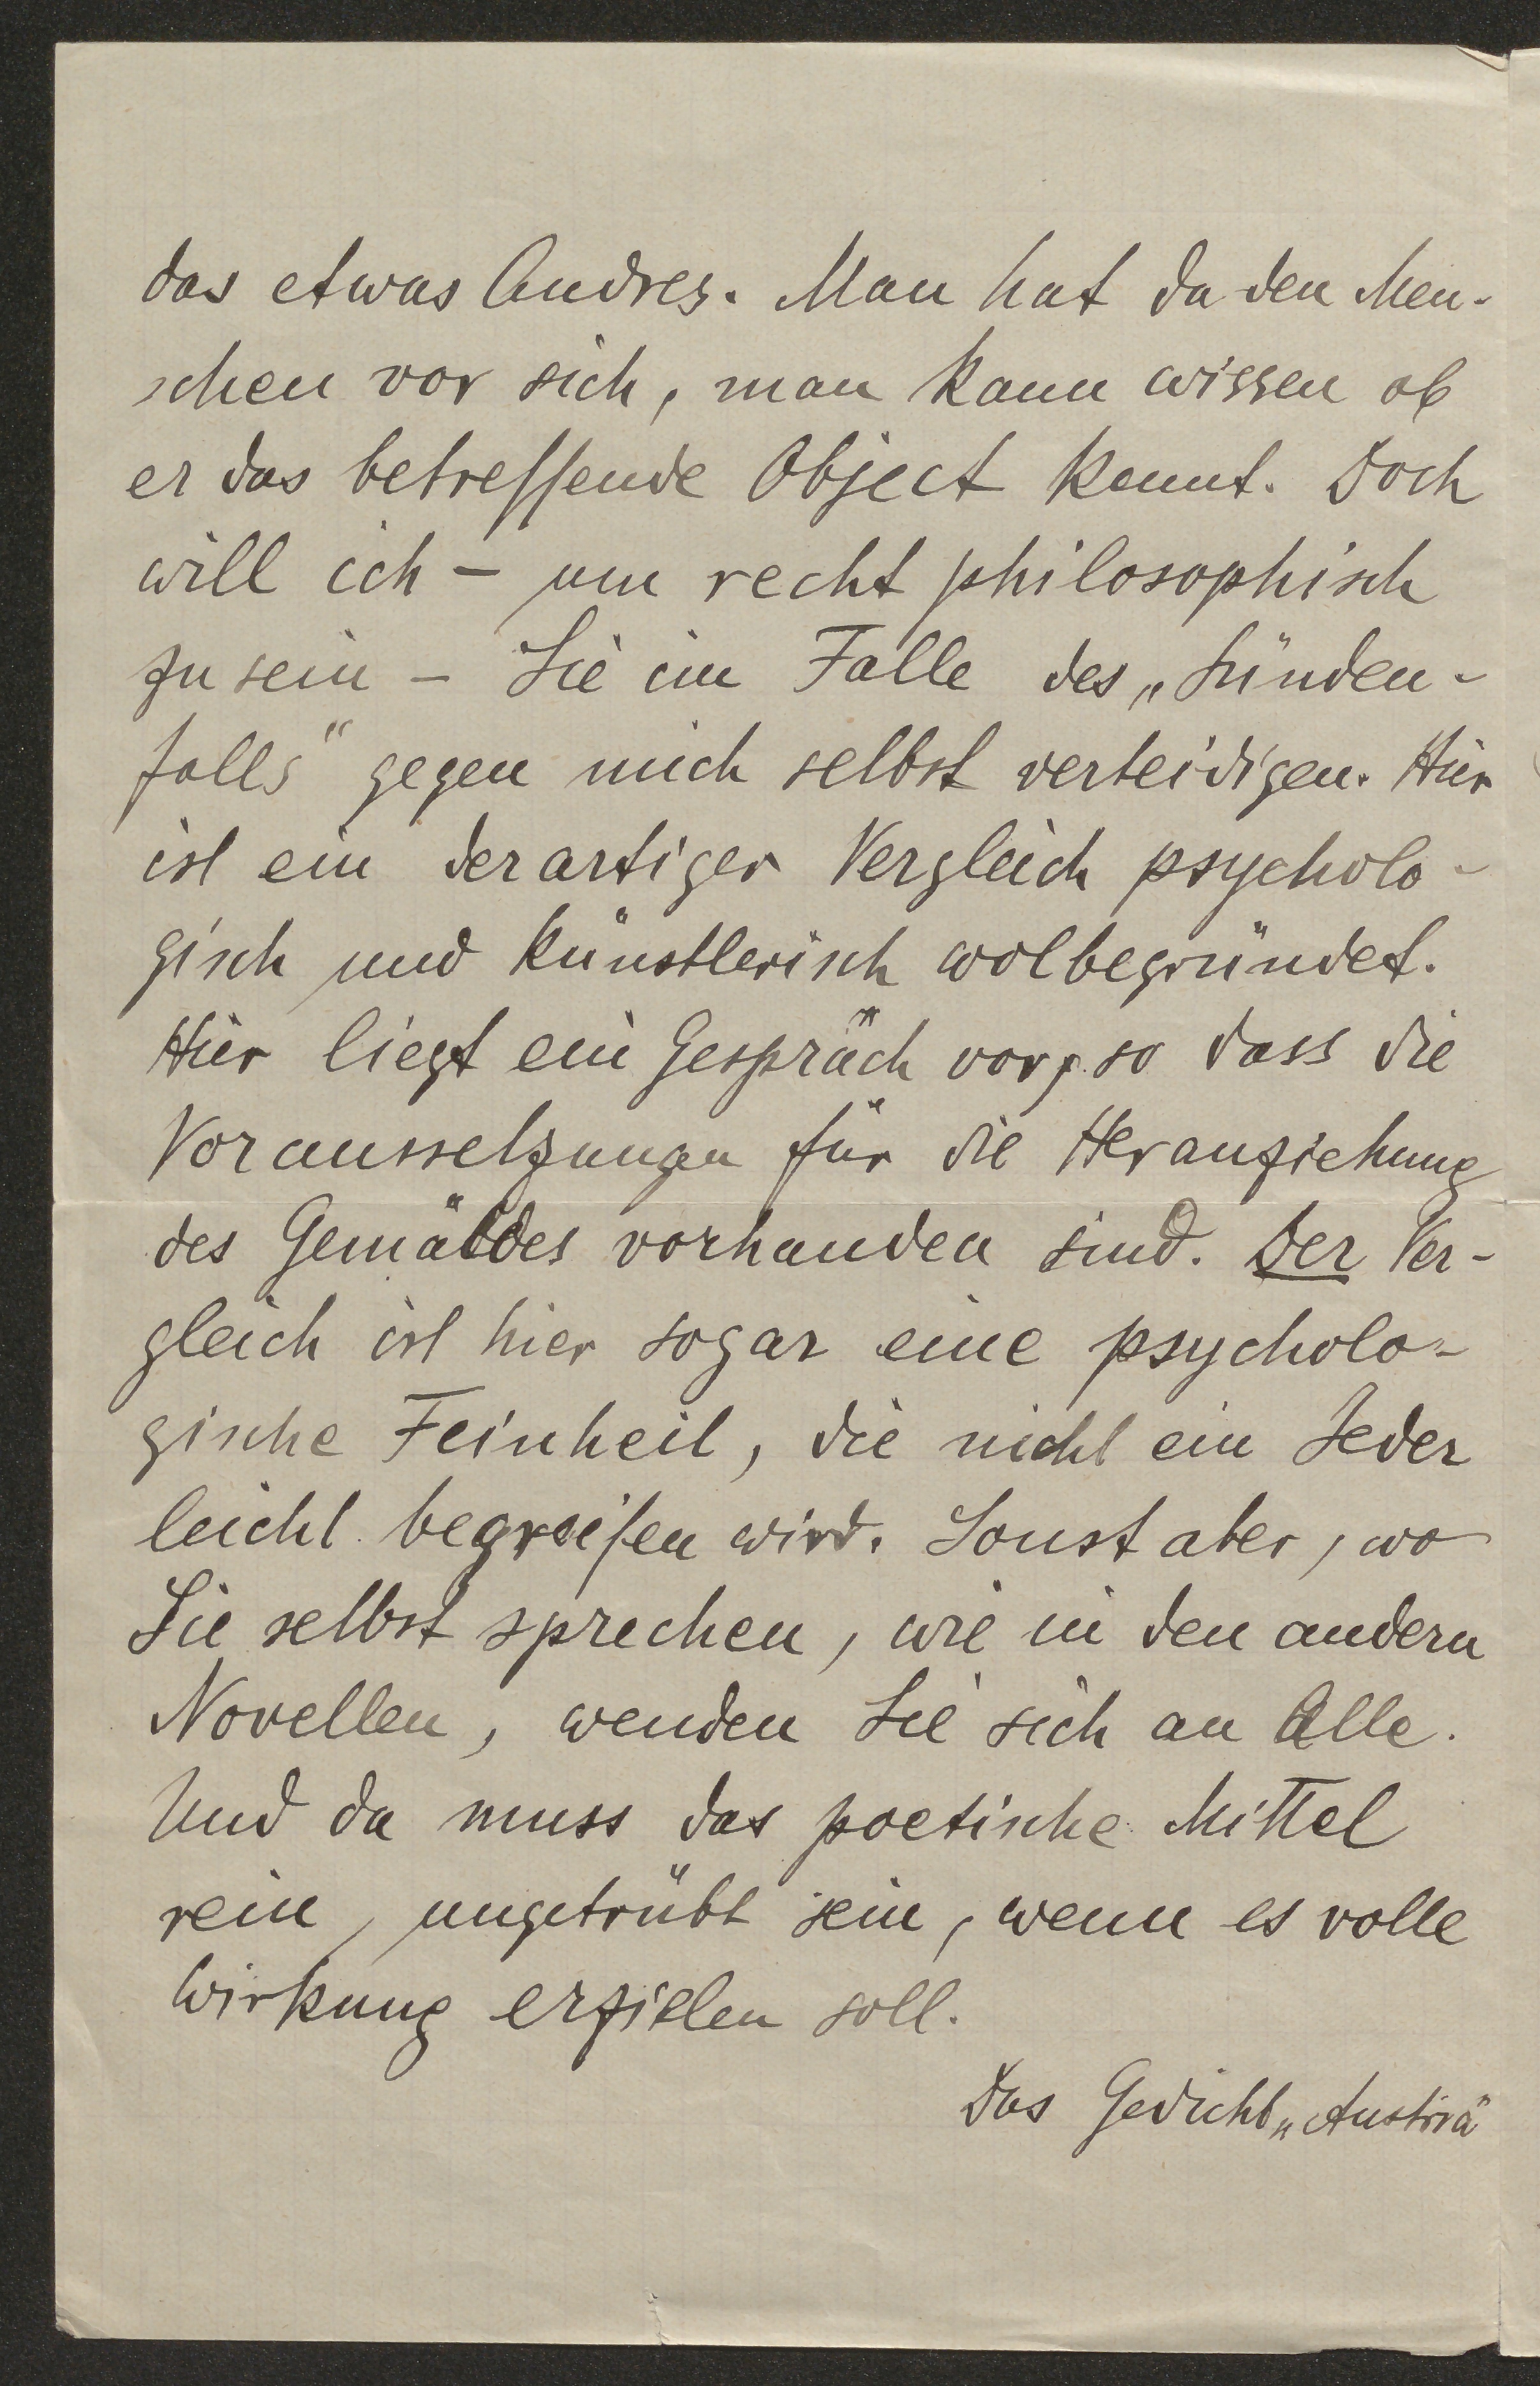 das etwas Andres. Man hat da den Men-
schen vor sich, man kann wissen ob
er das betreffende Object kennt. Doch
will ich – um recht philosophisch
zu sein – Sie im Falle des „Sünden-
falls“ gegen mich selbst verteidigen. Hier
ist ein derartiger Vergleich psycholo-
gisch und künstlerisch wolbegründet.
Hier liegt ein Gespräch vor, so dass die
Voraussetzungen für die Heranziehung
des Gemäldes vorhanden sind. Der Ver-
gleich ist hier sogar eine psycholo-
gische Feinheit, die nicht ein Jeder
leicht begreifen wird. Sonst aber, wo
Sie selbst sprechen, wie in den andern
Novellen, wenden Sie sich an Alle.
Und da muss das poetische Mittel
rein, ungetrübt sein, wenn es volle
Wirkung erzielen soll.
Das Gedicht „Austria“